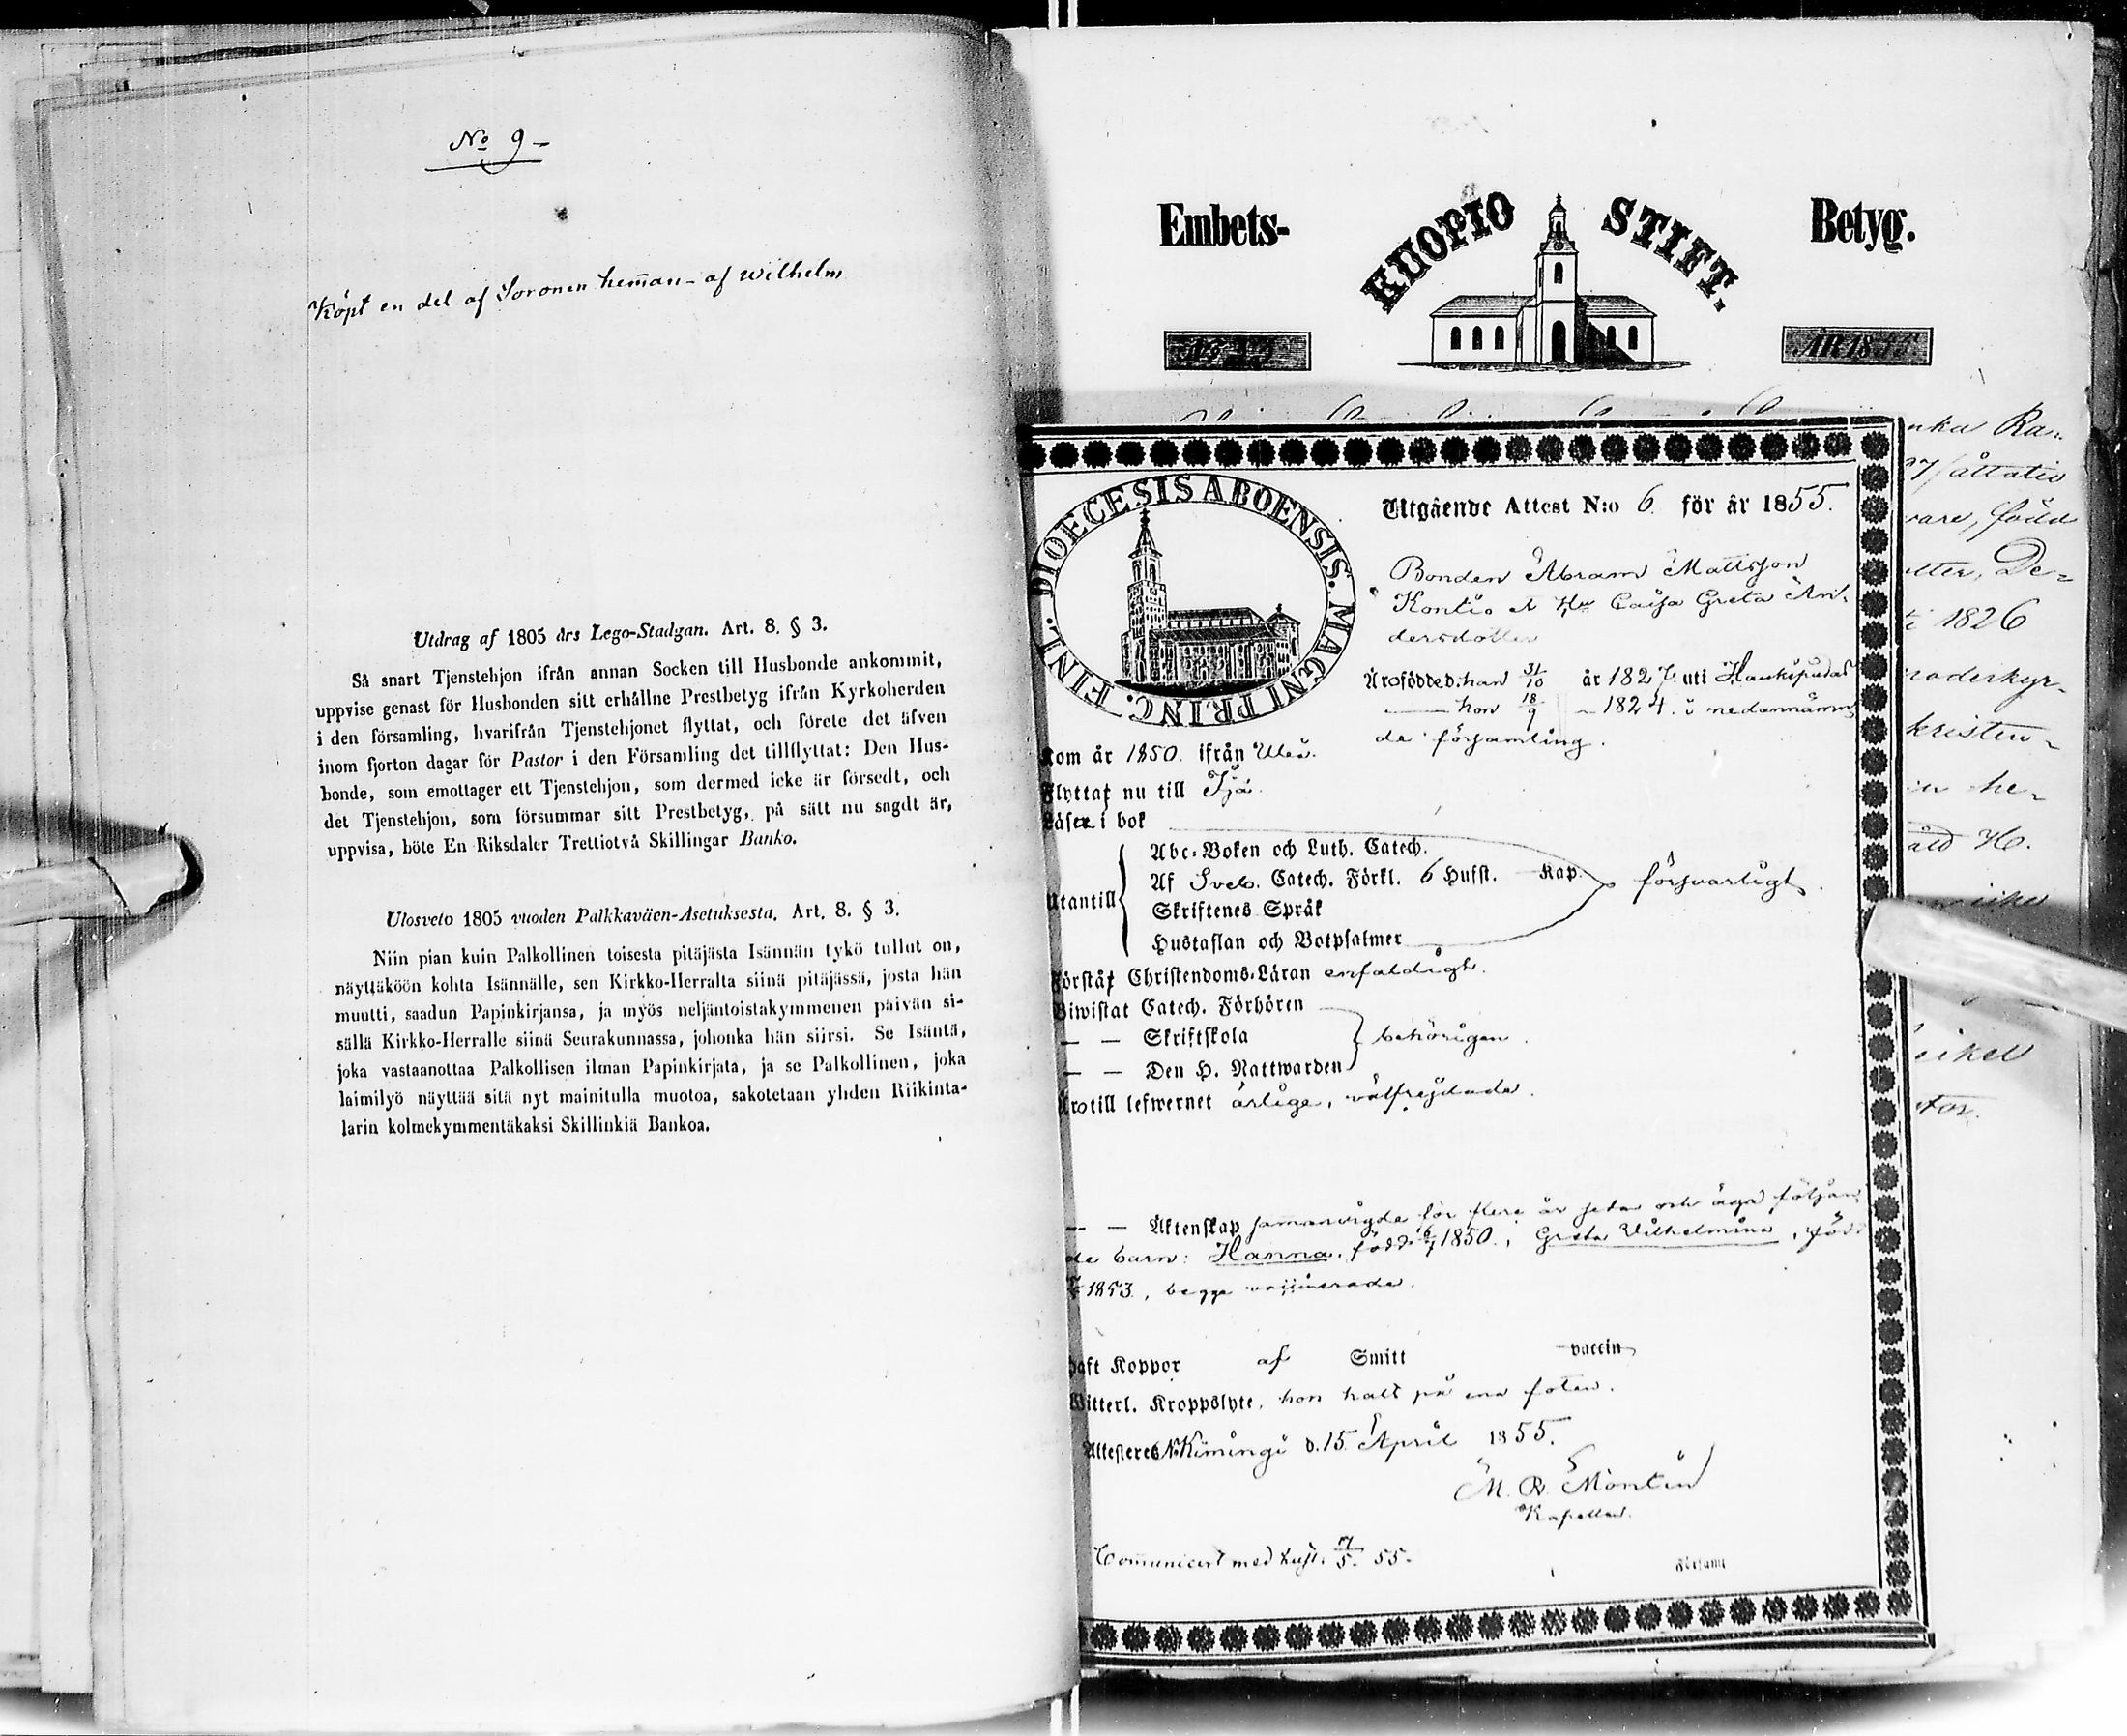 No 9-
Köpt en del af Soronen heman- af Wilhelm
Utdrag af 1805 års Lego-Stadgan. Art. 8. § 3.
Så snart Tjenstehjon ifrån annan Socken till Husbonde ankommit,
uppvise genast för Husbonden sitt erhållne Prestbetyg ifrån Kyrkoherden
i den församling, hvarifrån Tjenstehjonet flyttat, och förete det äfven
inom fjorton dagar för Pastor i den Församling det tillflyttat: Den Hus-
bonde, som emottager ett Tjenstehjon, som dermed icke är försedt, och
det Tjenstehjon, som försummar sitt Prestbetyg, på sätt nu sagdt är,
uppvisa, böte En Riksdaler Trettiotvå Skillingar Banko.
Ulosveto 1805 vuoden Palkkaväen-Asetuksesta. Art. 8. § 3.
Niin pian kuin Palkollinen toisesta pitäjästa Isännän tykö tullut on,
näyttäköön kohta Isännälle, sen Kirkko-Herralta siinä pitäjässä, josta hän
muutti, saadun Papinkirjansa, ja myös neljäntoistakymmenen päivän si-
sällä Kirkko-Herralle siinä Seurakunnassa, johonka hän siirsi. Se Isäntä,
joka vastaanottaa Palkollisen ilman Papinkirjata, ja se Palkollinen, joka
laimilyö näyttää sitä nyt mainitulla muotoa, sakotetaan yhden Riikinta-
larin kolmekymmentäkaksi Skillinkiä Bankoa.
Embets- KUOPIO STIFT. Betyg.
ÅR 1855
nka Ra-
97/åttatio
vare, född
otter, De-
1826
roderskyr-
kristen-
he-
åld H.
eikel
DIOECESIS ABOENSIS. MAGNI PRINC. FINL.
Utgående Attest N:o 6. för år 1855.
Bonden Abram Mattsson
Kontio et Hu Caisa Greta An-
dersdotter
Äro födde d. han 31/10 år 1827 uti Haukipudas
— hon 18/9 - 1824. i nedannämn
de församling.
kom år 1850. ifrån Uleå.
Flyttat nu till Ijo.
Läser i bok
Abc-Boken och Luth. Catech.
Utantill Af Sveb. Catech. Förkl. 6 Hufst. Kap. försvarligt.
Skriftenes Språk
Hustaflan och Botpsalmer
Förstår Christendoms-Läran enfaldigt.
Biwistat Catech. Förhören
— — Skriftskola behörigen.
— — Den H. Nattwarden
Äro till lefwernet ärlige, välfrejdade.
— — Äktenskap sammanvigde för flere år sedan och äga följan
de barn: Hanna, född 1850., Greta Vilhelmina, född
1853., begge vaccinerade.
haft Koppor af Smitt vaccin
Witterl. Kroppslyte, hon halt på ena foten.
Attesteres N. Kiminge d. 15. April 1855.
M. R. Montin
Kapellan.
Communicert med hust. 7/5. 55.
Församl